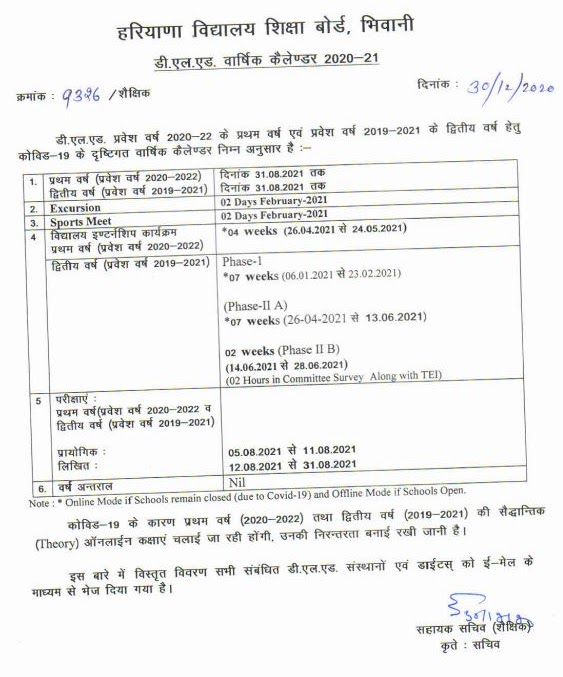 हरियाणा विद्यालय शिक्षा बोर्ड, भिवानी
डी.एल.एड. वार्षिक कैलेण्डर 2020–21
क्रमांक : 9326 /शैक्षिक
दिनांक : 30/12/2020
डी.एल.एड. प्रवेश वर्ष 2020–22 के प्रथम वर्ष एवं प्रवेश वर्ष 2019–2021 के द्वितीय वर्ष हेतु
कोविड–19 के दृष्टिगत वार्षिक कैलेण्डर निम्न अनुसार है :–
1. प्रथम वर्ष (प्रवेश वर्ष 2020–2022) दिनांक 31.08.2021 तक
द्वितीय वर्ष (प्रवेश वर्ष 2019–2021) दिनांक 31.08.2021 तक
2. Excursion 02 Days February-2021
3. Sports Meet 02 Days February-2021
4 विद्यालय इण्टर्नशिप कार्यक्रम
प्रथम वर्ष (प्रवेश वर्ष 2020–2022) *04 weeks (26.04.2021 से 24.05.2021)
द्वितीय वर्ष (प्रवेश वर्ष 2019–2021) Phase-1
*07 weeks (06.01.2021 से 23.02.2021)
(Phase-II A)
*07 weeks (26-04-2021 से 13.06.2021)
02 weeks (Phase II B)
(14.06.2021 से 28.06.2021)
(02 Hours in Committee Survey Along with TEI)
5 परीक्षाएं :
प्रथम वर्ष(प्रवेश वर्ष 2020–2022 व
द्वितीय वर्ष (प्रवेश वर्ष 2019–2021)
प्रायोगिक : 05.08.2021 से 11.08.2021
लिखित : 12.08.2021 से 31.08.2021
6. वर्ष अन्तराल Nil
Note : * Online Mode if Schools remain closed (due to Covid-19) and Offline Mode if Schools Open.
कोविड–19 के कारण प्रथम वर्ष (2020–2022) तथा द्वितीय वर्ष (2019–2021) की सैद्धान्तिक
(Theory) ऑनलाईन कक्षाएं चलाई जा रही होंगी, उनकी निरन्तरता बनाई रखी जानी है।
इस बारे में विस्तृत विवरण सभी संबंधित डी.एल.एड. संस्थानों एवं डाईटस् को ई–मेल के
माध्यम से भेज दिया गया है।
सहायक सचिव (शैक्षिक)
कृते : सचिव